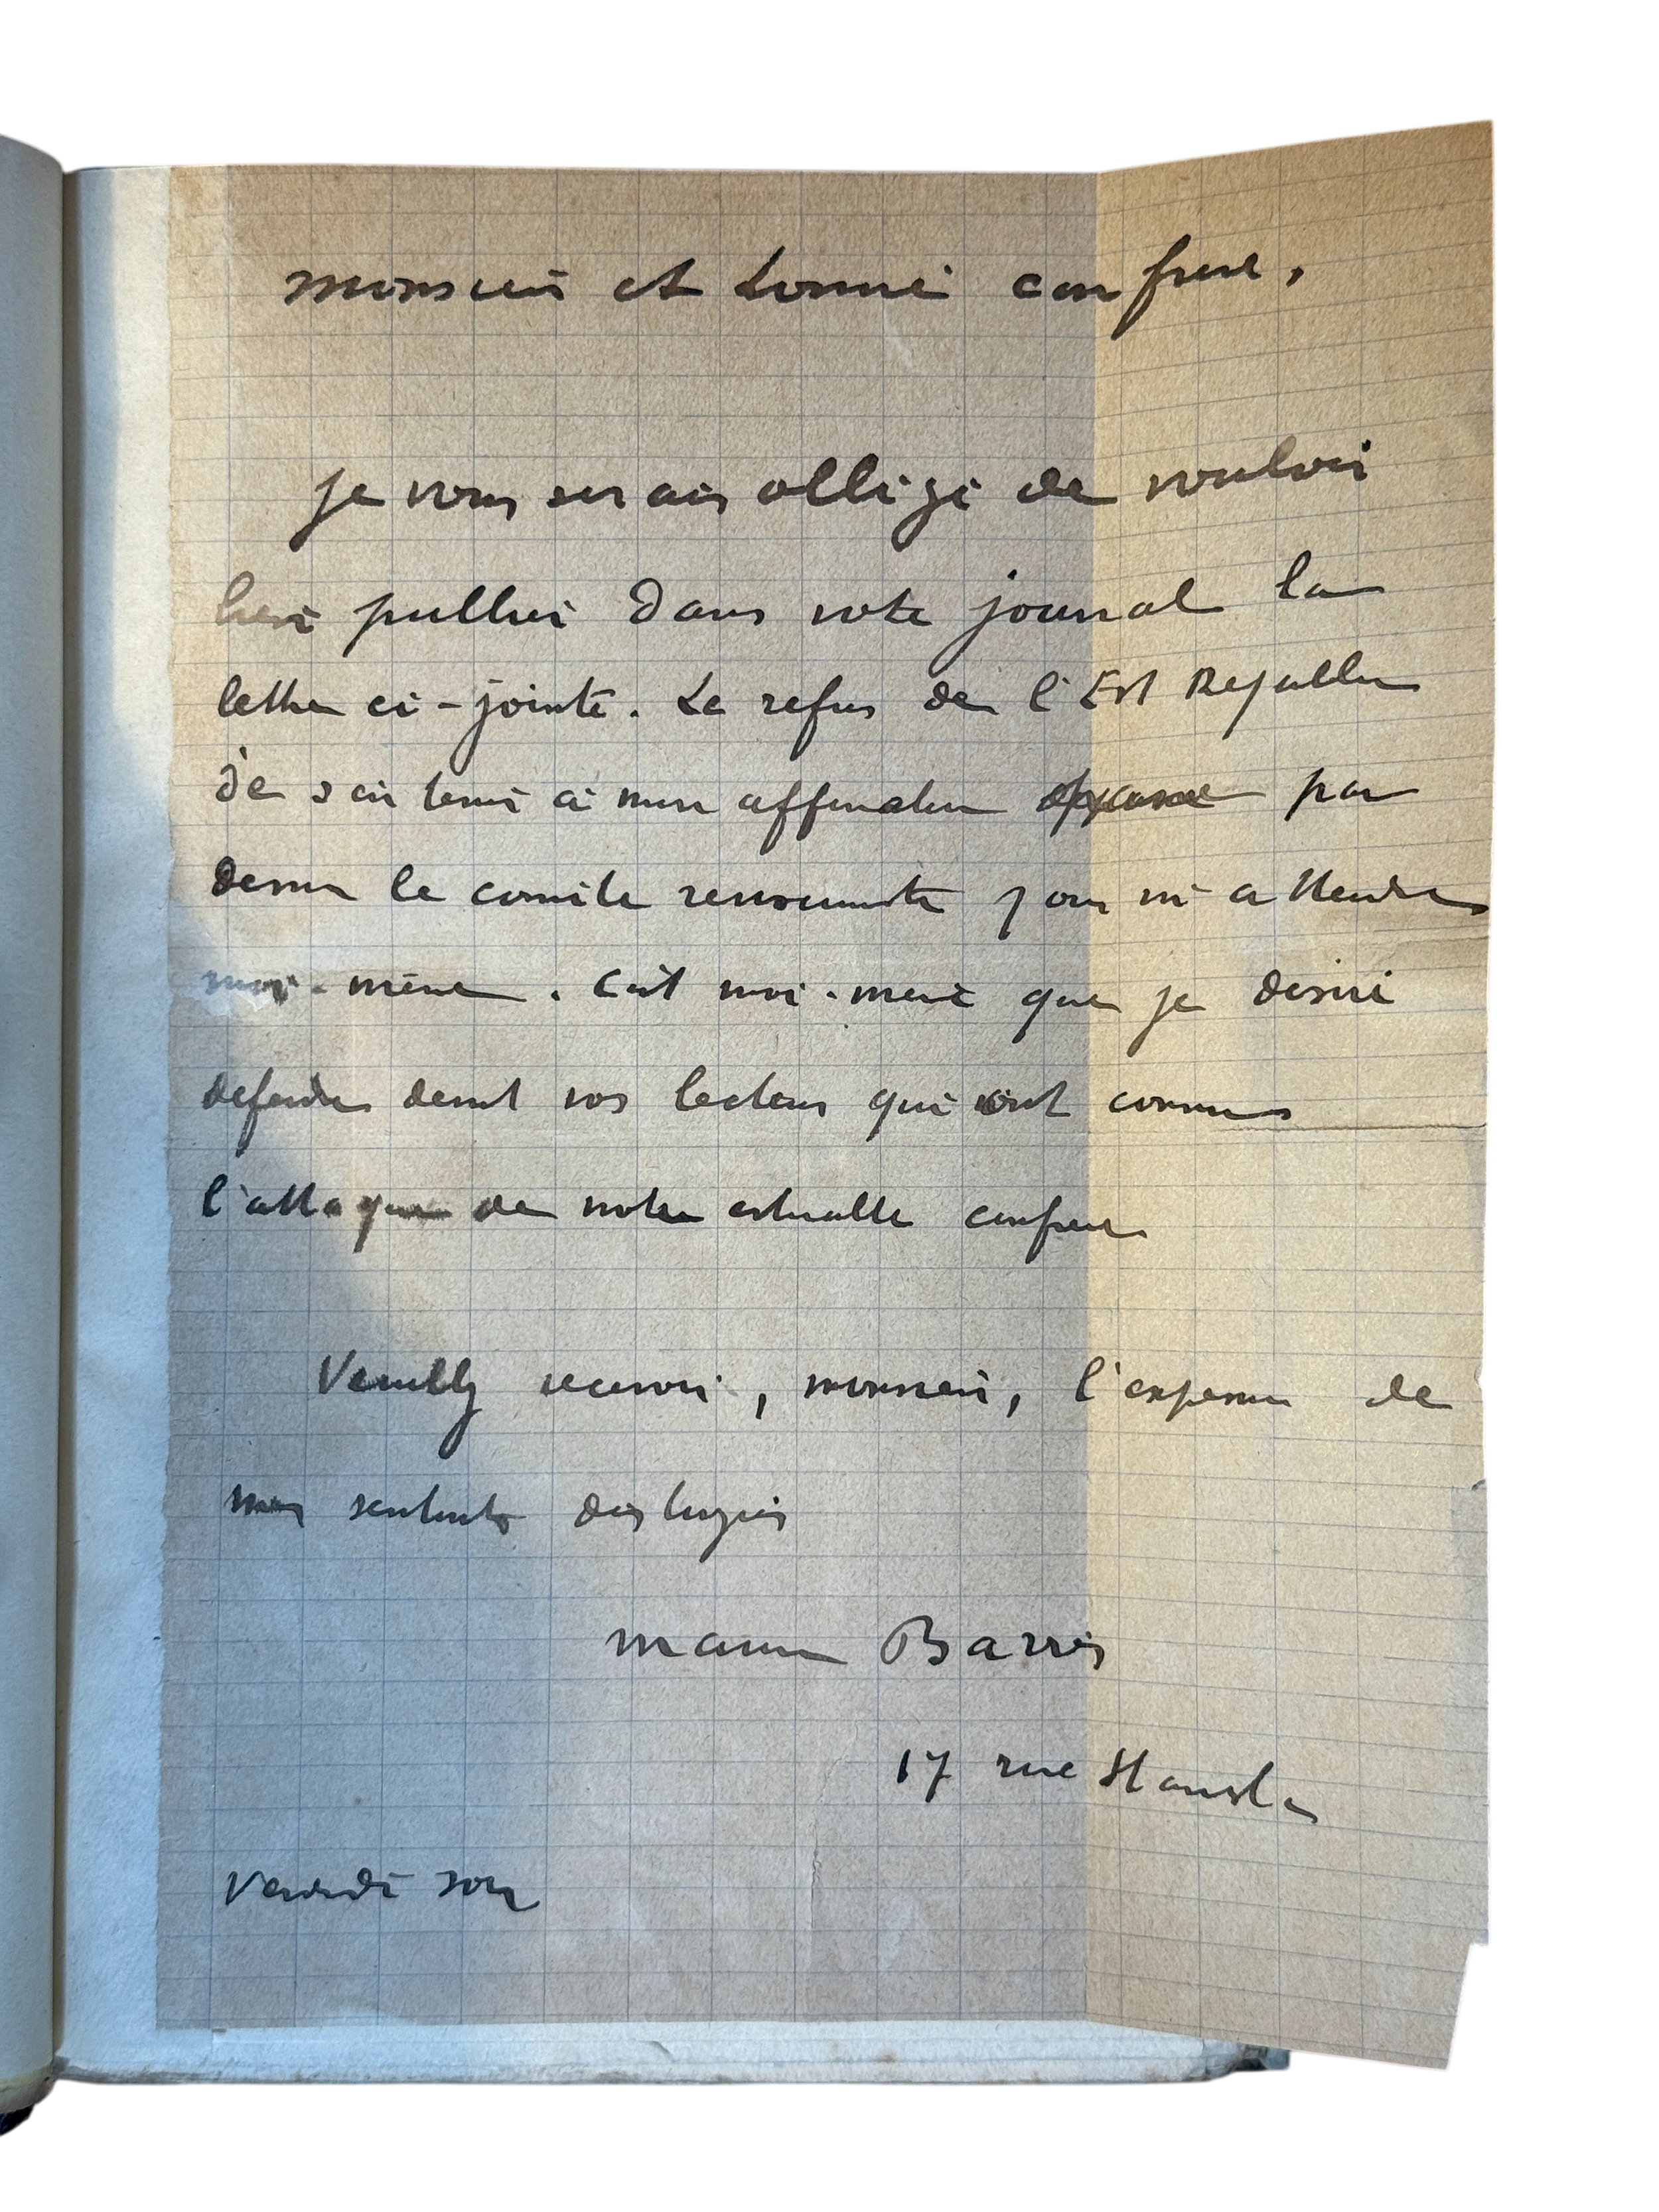 Monsieur et honoré confrère,
je vous serais obligé de vouloir
bien publier dans votre journal la
lettre ci-jointe. Le refus de l'Est Républicain
de à mon par
dessus le comité revisionniste pour m'atteindre
moi-même. C'est moi-même que je désire
défendre devant vos lecteurs qui ont connu
l'attaque de notre estimable confrère
Veuillez recevoir, monsieur, l'expression de
mes sentiments distingués
Maurice Barrès
17 rue Stanislas
Vendredi soir